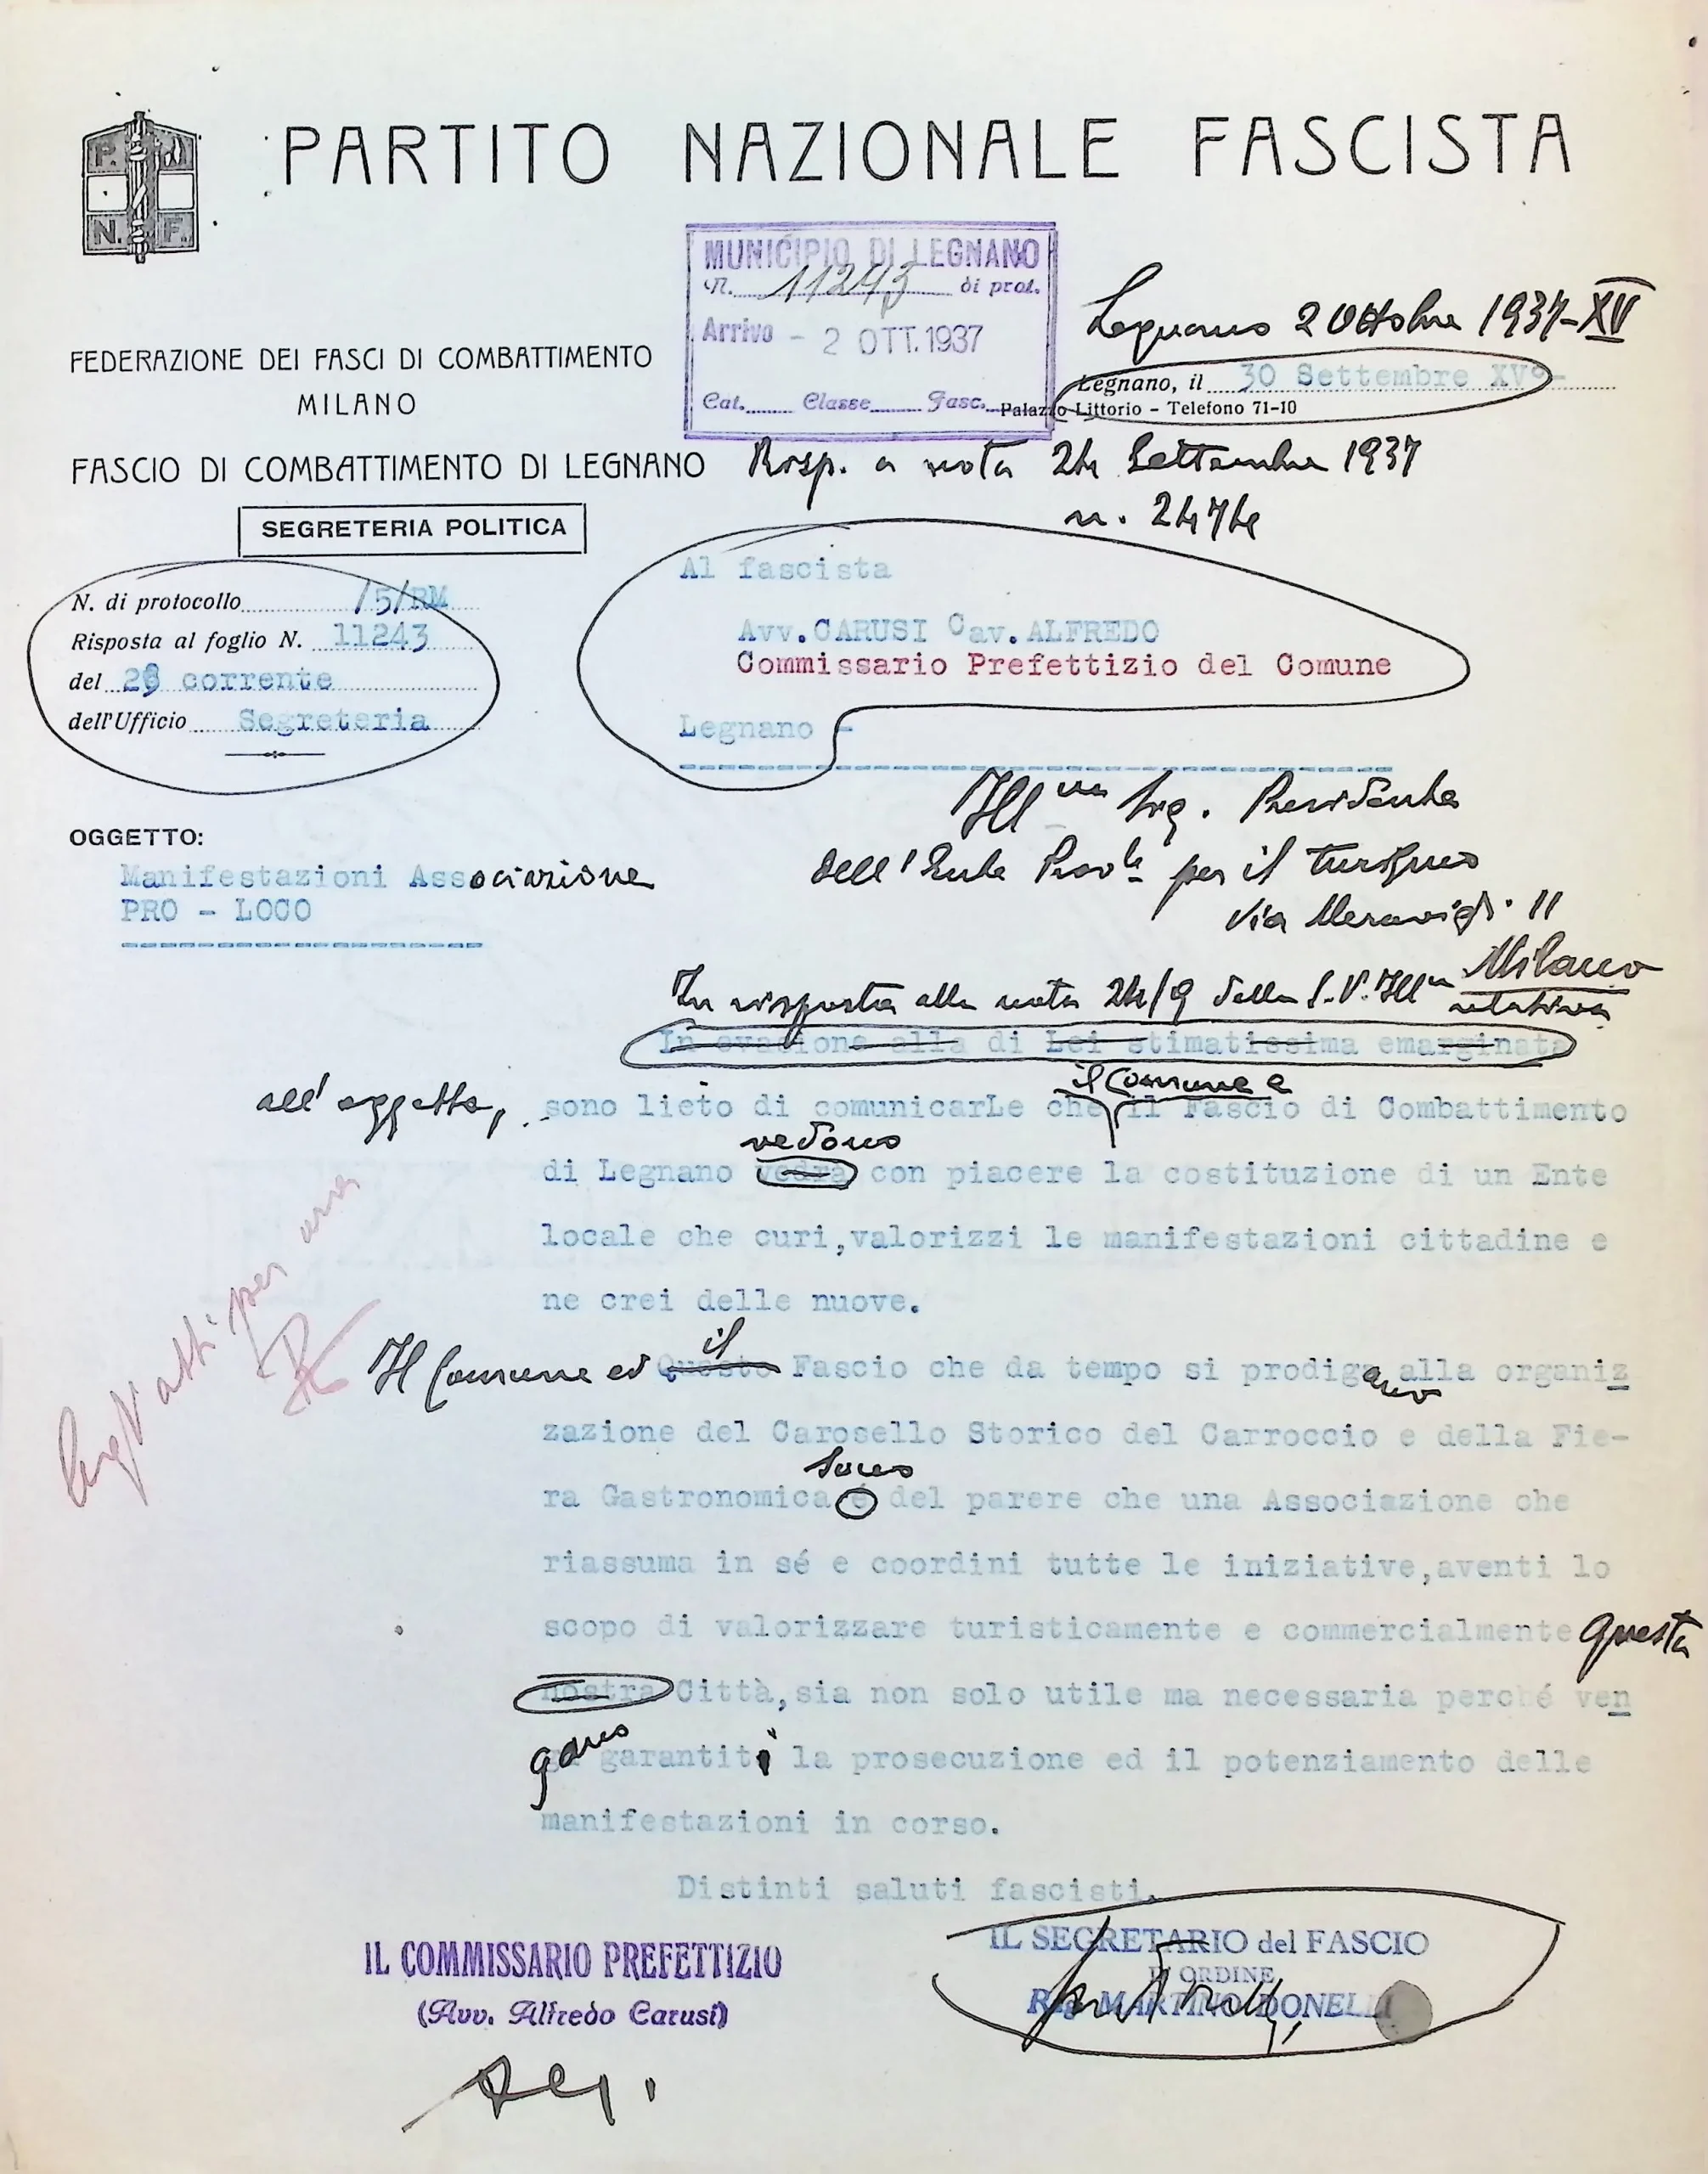 P. N. F.
PARTITO NAZIONALE FASCISTA
MUNICIPIO DI LEGNANO
N. 11243 di prot.
Arrivo - 2 OTT. 1937
Cat. Classe Fasc.
Legnano 2 Ottobre 1937-XV
FEDERAZIONE DEI FASCI DI COMBATTIMENTO
MILANO
Legnano, il 30 Settembre XV°-
Palazzo Littorio - Telefono 71-10
FASCIO DI COMBATTIMENTO DI LEGNANO
Risp. a nota 24 Settembre 1937
n. 2474
SEGRETERIA POLITICA
N. di protocollo /5/RM
Risposta al foglio N. 11243
del 28 corrente
dell'Ufficio Segreteria
Al fascista
Avv. CARUSI Cav. ALFREDO
Commissario Prefettizio del Comune
Legnano -
Ill mo Sig. Presidente
dell'Ente Prov le per il turismo
Via Meravigli 11
Milano
OGGETTO:
Manifestazioni Associazione
PRO - LOCO
In risposta alla nota 24/9 della S.V. Ill ma relativa
In evasione alla di Lei stimatissima emarginata
all'oggetto,
il Comune e
sono lieto di comunicarLe che il Fascio di Combattimento
vedono
di Legnano vedrà con piacere la costituzione di un Ente
locale che curi, valorizzi le manifestazioni cittadine e
ne crei delle nuove.
il
Il Comune ed Questo Fascio che da tempo si prodigano alla organiz
zazione del Carosello Storico del Carroccio e della Fie-
sono
ra Gastronomica é del parere che una Associazione che
riassuma in sé e coordini tutte le iniziative, aventi lo
scopo di valorizzare turisticamente e commercialmente questa
nostra Città, sia non solo utile ma necessaria perché ven
gano garantiti la prosecuzione ed il potenziamento delle
manifestazioni in corso.
Distinti saluti fascisti.
atti per ora
IL COMMISSARIO PREFETTIZIO
(Avv. Alfredo Carusi)
IL SEGRETARIO del FASCIO
D'ORDINE
Rag. MARTINO DONELLI